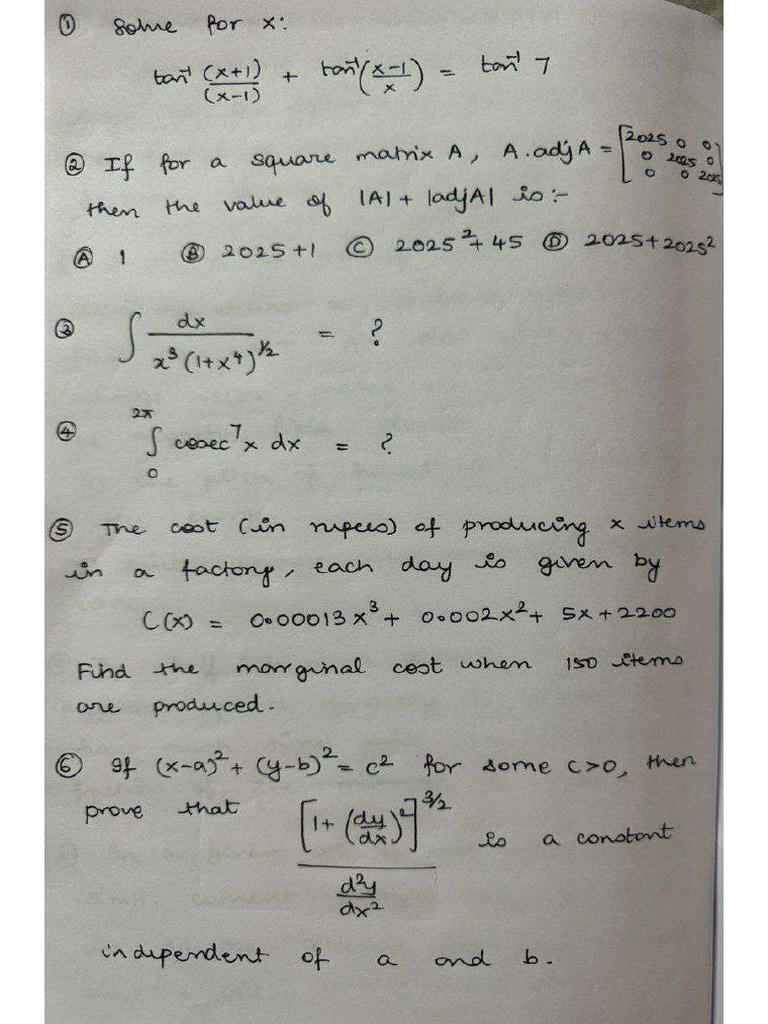 ① Solve for x:
tan⁻¹ (x+1)/(x-1) + tan⁻¹ ((x-1)/x) = tan⁻¹ 7
② If for a square matrix A, A.adjA = [2025 0 0; 0 2025 0; 0 0 2025]
then the value of |A| + |adjA| is :-
Ⓐ 1 Ⓑ 2025+1 Ⓒ 2025²+45 Ⓓ 2025+2025²
③ ∫ dx / (x³ (1+x⁴)^1/2) = ?
④ ∫₀^2π cosec⁷x dx = ?
⑤ The cost (in rupees) of producing x items
in a factory, each day is given by
C(x) = 0.00013x³ + 0.002x² + 5x + 2200
Find the marginal cost when 150 items
are produced.
⑥ If (x-a)² + (y-b)² = c² for some c>0, then
prove that [1 + (dy/dx)²]^3/2 / (d²y/dx²) is a constant
independent of a and b.